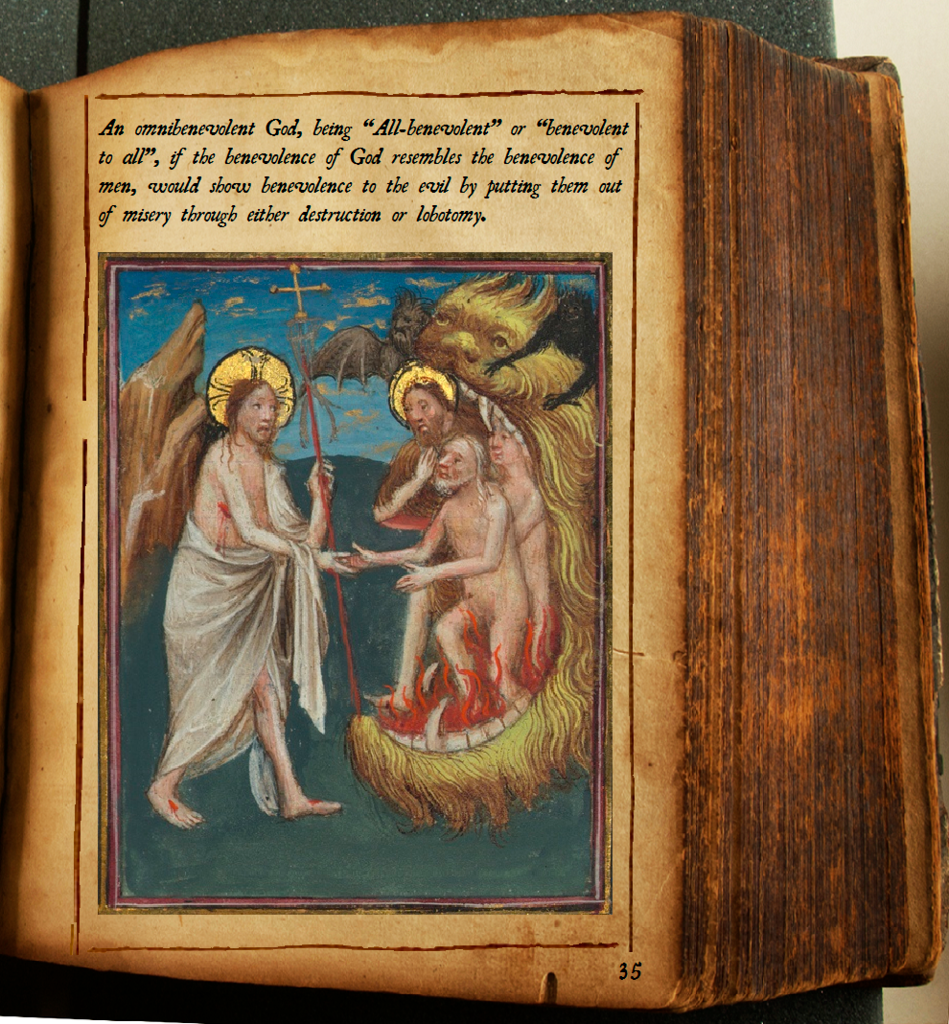 An omnibenevolent God, being “All-benevolent” or “benevolent
to all”, if the benevolence of God resembles the benevolence of
men, would show benevolence to the evil by putting them out
of misery through either destruction or lobotomy.
35